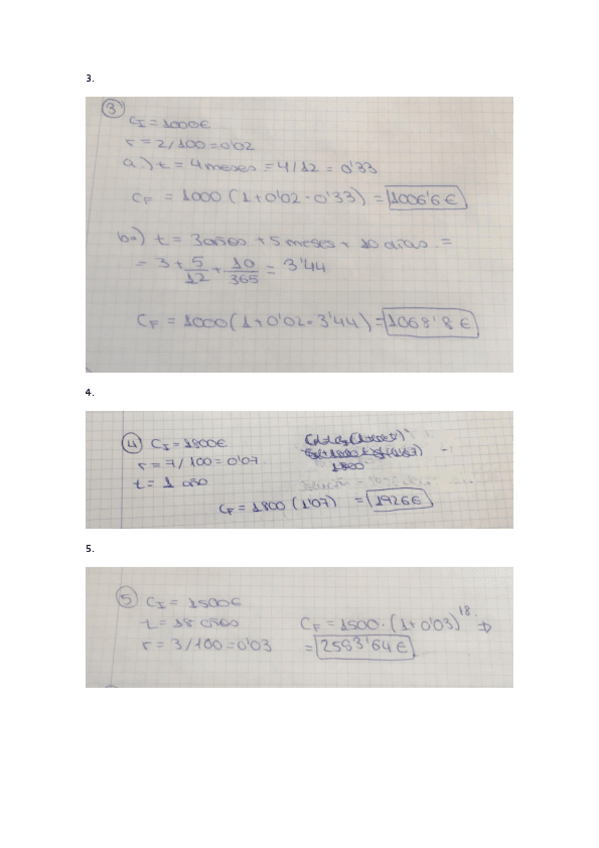 3.
3
CI = 1000€
r = 2/100 = 0'02
a.) t = 4 meses = 4/12 = 0'33
CF = 1000 (1 + 0'02 · 0'33) = 1006'6 €
b.) t = 3 años + 5 meses + 10 días. =
= 3 + 5/12 + 10/365 = 3'44
CF = 1000 (1 + 0'02 · 3'44) = 1068'8 €
4.
4 CI = 1800€
r = 7/100 = 0'07
1800
t = 1 año
CF = 1800 (1'07) = 1926€
5.
5 CI = 1500€
t = 18 años CF = 1500 · (1 + 0'03)^18 ⇒
r = 3/100 = 0'03 = 2553'64 €